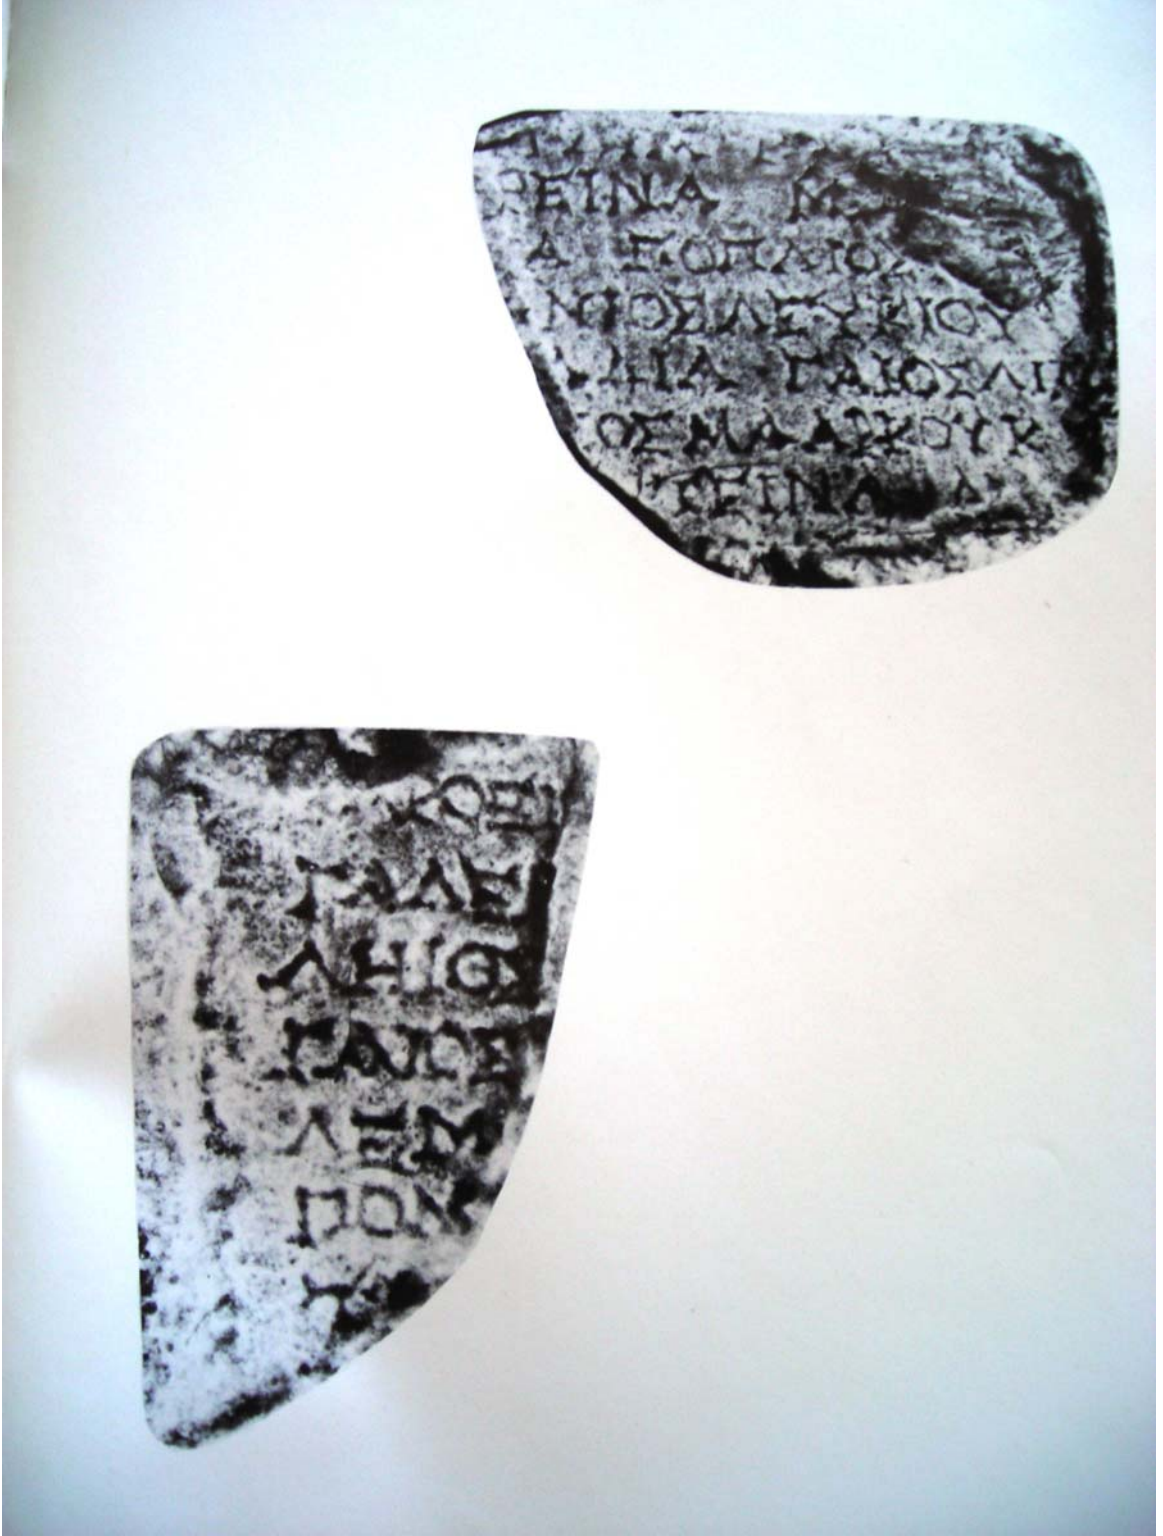 ΕΙΝΑ Μ
Α ΠΟΠΛΙΟΣ
ΝΙΟΣ ΛΕΥΚΙΟΥ
ΔΙΑ ΓΑΙΟΣ ΛΙ
ΟΣ ΜΑΑΡΚΟΥ Κ
ΤΕΙΝΑ Α
ΚΟΣ
ΓΑΛΕ
ΛΗΙΟΣ
ΓΑΙΟΣ
ΛΕΜ
ΠΟΝ
Τ